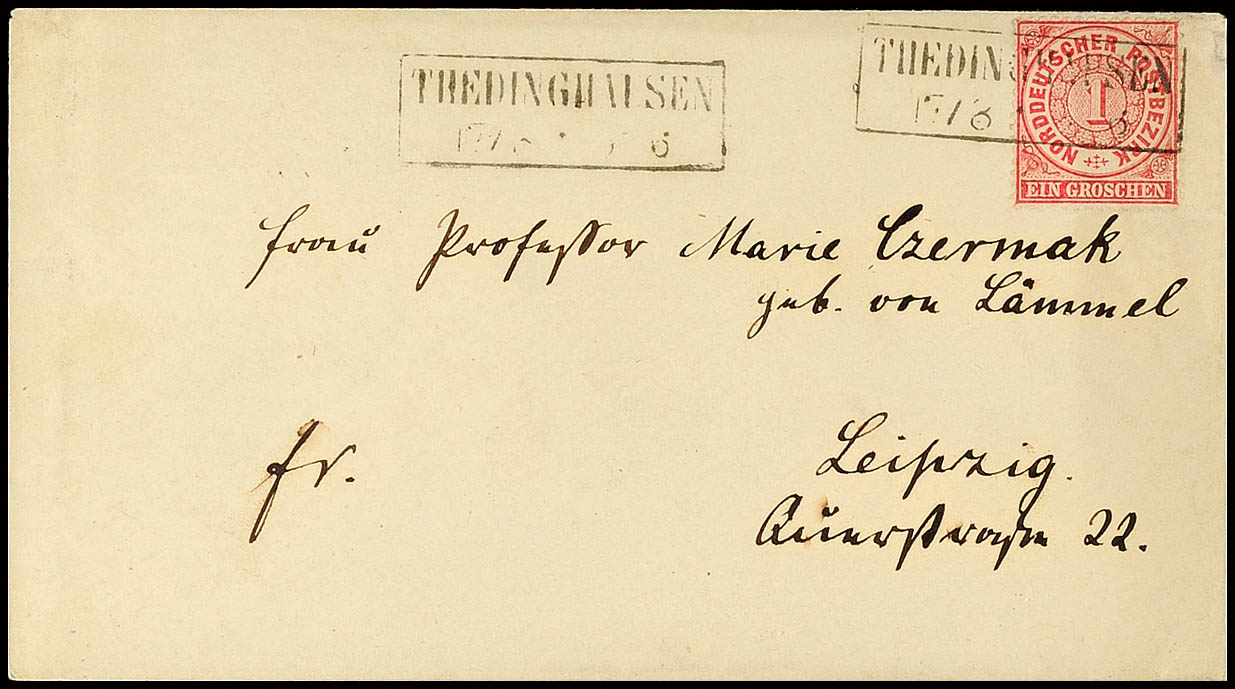 THEDINGHAUSEN
THEDINGHAUSEN
NORDDEUTSCHER POSTBEZIRK
1
EIN GROSCHEN
Frau Professor Marie Czermak
geb. von Lämmel
fr.
Leipzig.
Querstraße 22.